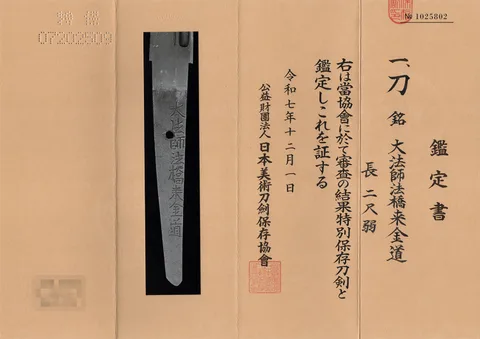 № 1025802
鑑定書
一、刀 銘 大法師法橋来金道
長 二尺弱
右は當協會に於て審査の結果特別保存刀剣と
鑑定しこれを証する
令和七年十二月一日
公益財團法人 日本美術刀劍保存協會
大法師法橋来金道
07202509